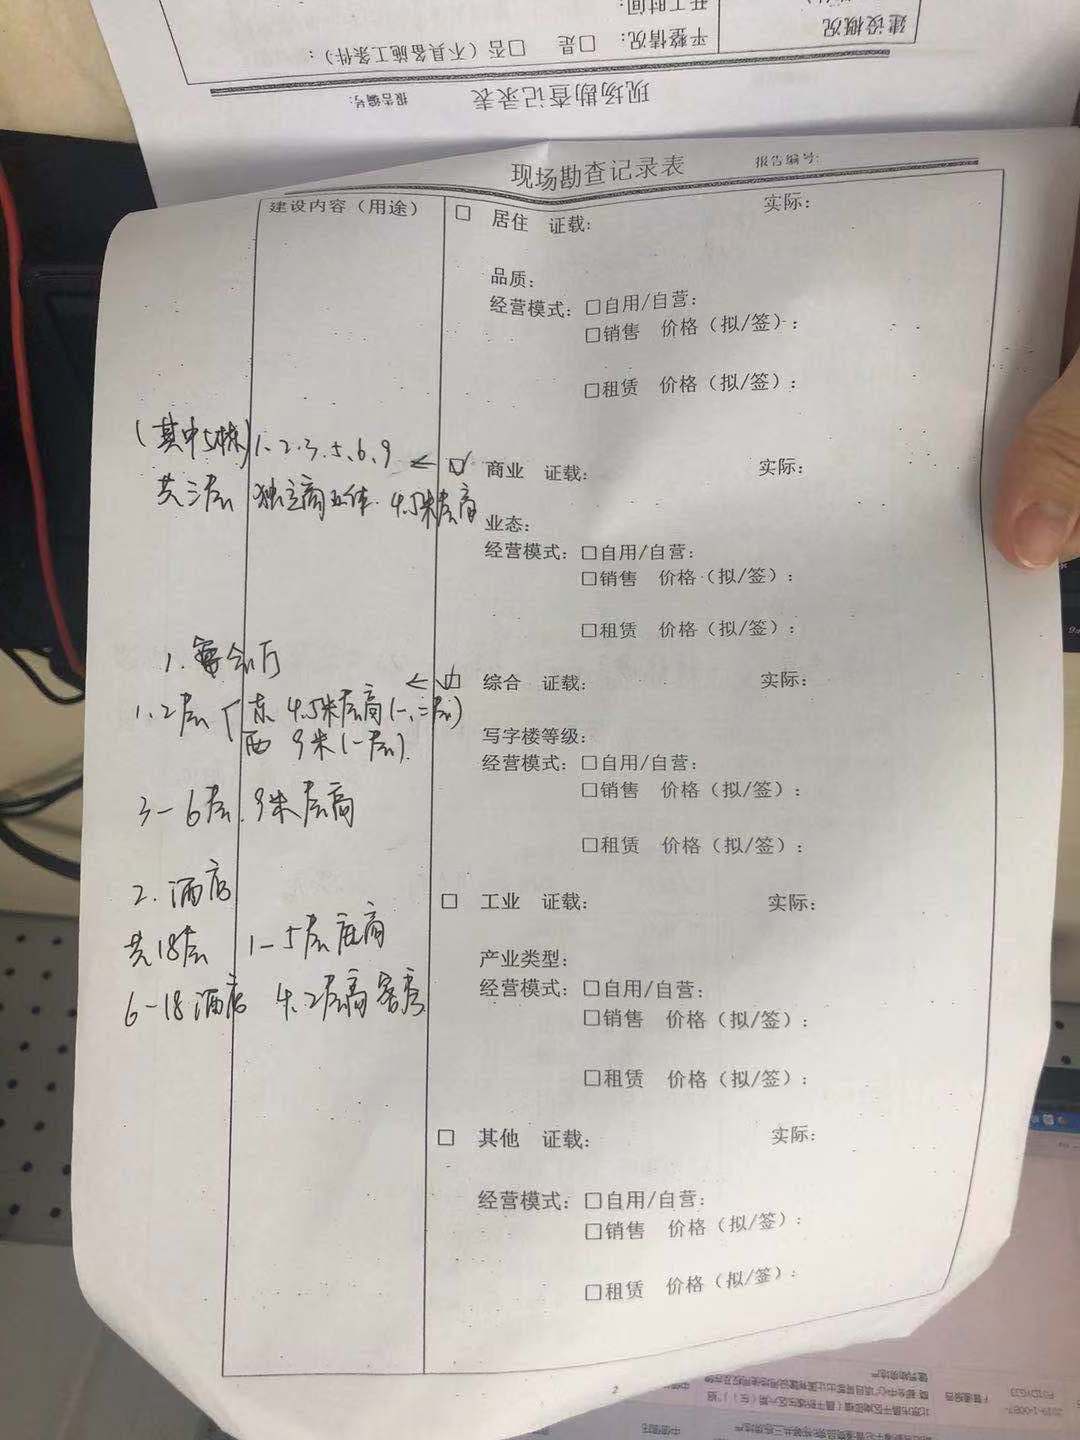 建设概况
平整情况：□是 □否（不具备施工条件）：
开工时间：
现场勘查记录表 报告编号：
现场勘查记录表 报告编号：
建设内容（用途）
□ 居住 证载： 实际：
品质：
经营模式：□自用/自营：
□销售 价格（拟/签）：
□租赁 价格（拟/签）：
(其中5栋) 1、2、3、5、6、9 ← ☑ 商业 证载： 实际：
共三层 独立商业体. 4.5米层高
业态：
经营模式：□自用/自营：
□销售 价格（拟/签）：
□租赁 价格（拟/签）：
1. 宴会厅
← ☑ 综合 证载： 实际：
1、2层 东 4.5米层高(一、二层)
西 9米(一层).
写字楼等级：
经营模式：□自用/自营：
□销售 价格（拟/签）：
3-6层. 9米层高
□租赁 价格（拟/签）：
2. 酒店
□ 工业 证载： 实际：
共18层 1-5层 层高
产业类型：
6-18酒店 4.2层高 客房
经营模式：□自用/自营：
□销售 价格（拟/签）：
□租赁 价格（拟/签）：
□ 其他 证载： 实际：
经营模式：□自用/自营：
□销售 价格（拟/签）：
□租赁 价格（拟/签）：
2